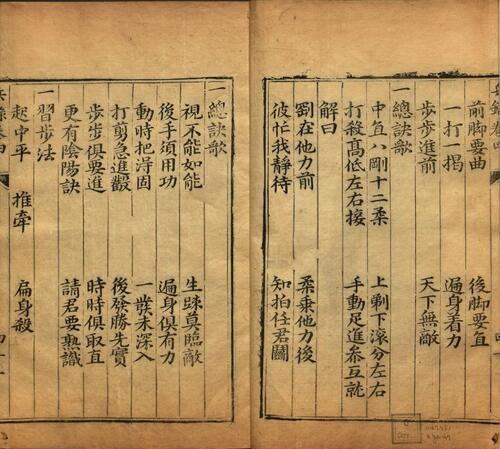 兵錄卷四
前脚要曲　後脚要直
一打一揭　遍身着力
步步進前　天下無敵
一總訣歌
中直八剛十二柔　上剃下滚分左右
打殺高低左右接　手動足進參互就
解曰
剛在他力前　柔乗他力後
彼忙我靜待　知拍任君鬭
一總訣歌
視不能如能　生踈莫臨敵
後手須用功　遍身俱有力
動時把淂固　一發未深入
打剪急進鑿　後發勝先實
步步俱要進　時時俱取直
更有陰陽訣　請君要熟識
一習步法
起中平　推牽　扁身殺
兵錄卷四